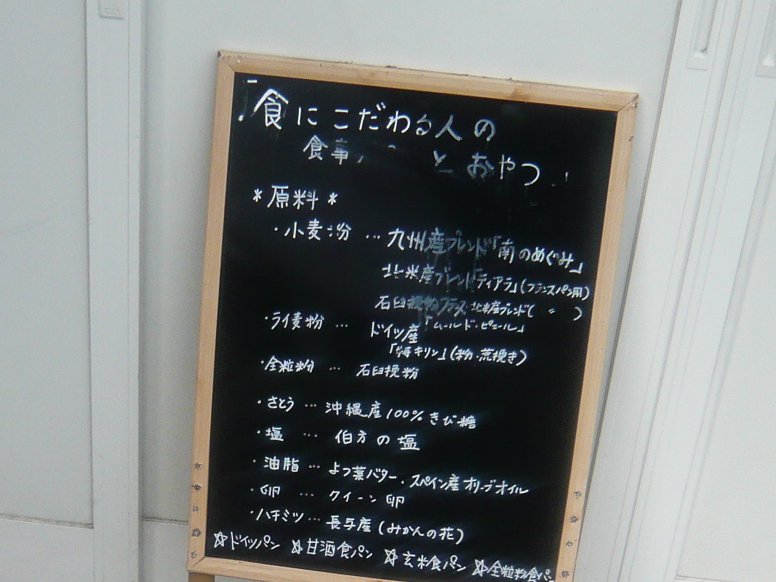 「食にこだわる人の
食事 とおやつ」
*原料*
・小麦粉 … 九州産ブレンド「南のめぐみ」
北米産ブレンド「ティアラ」(フランスパン用)
石臼挽粉フランス・北米産ブレンド( 〃 )
「ムールド・ピエール」
・ライ麦粉 … ドイツ産
「特キリン」(粉・荒挽き)
・全粒粉 … 石臼挽粉
・さとう … 沖縄産100%きび糖
・塩 … 伯方の塩
・油脂 … よつ葉バター・スペイン産オリーブオイル
・卵 … クイーン卵
・ハチミツ … 長与産(みかんの花)
☆ドイツパン ☆甘酒食パン ☆玄米食パン ☆全粒粉食パン